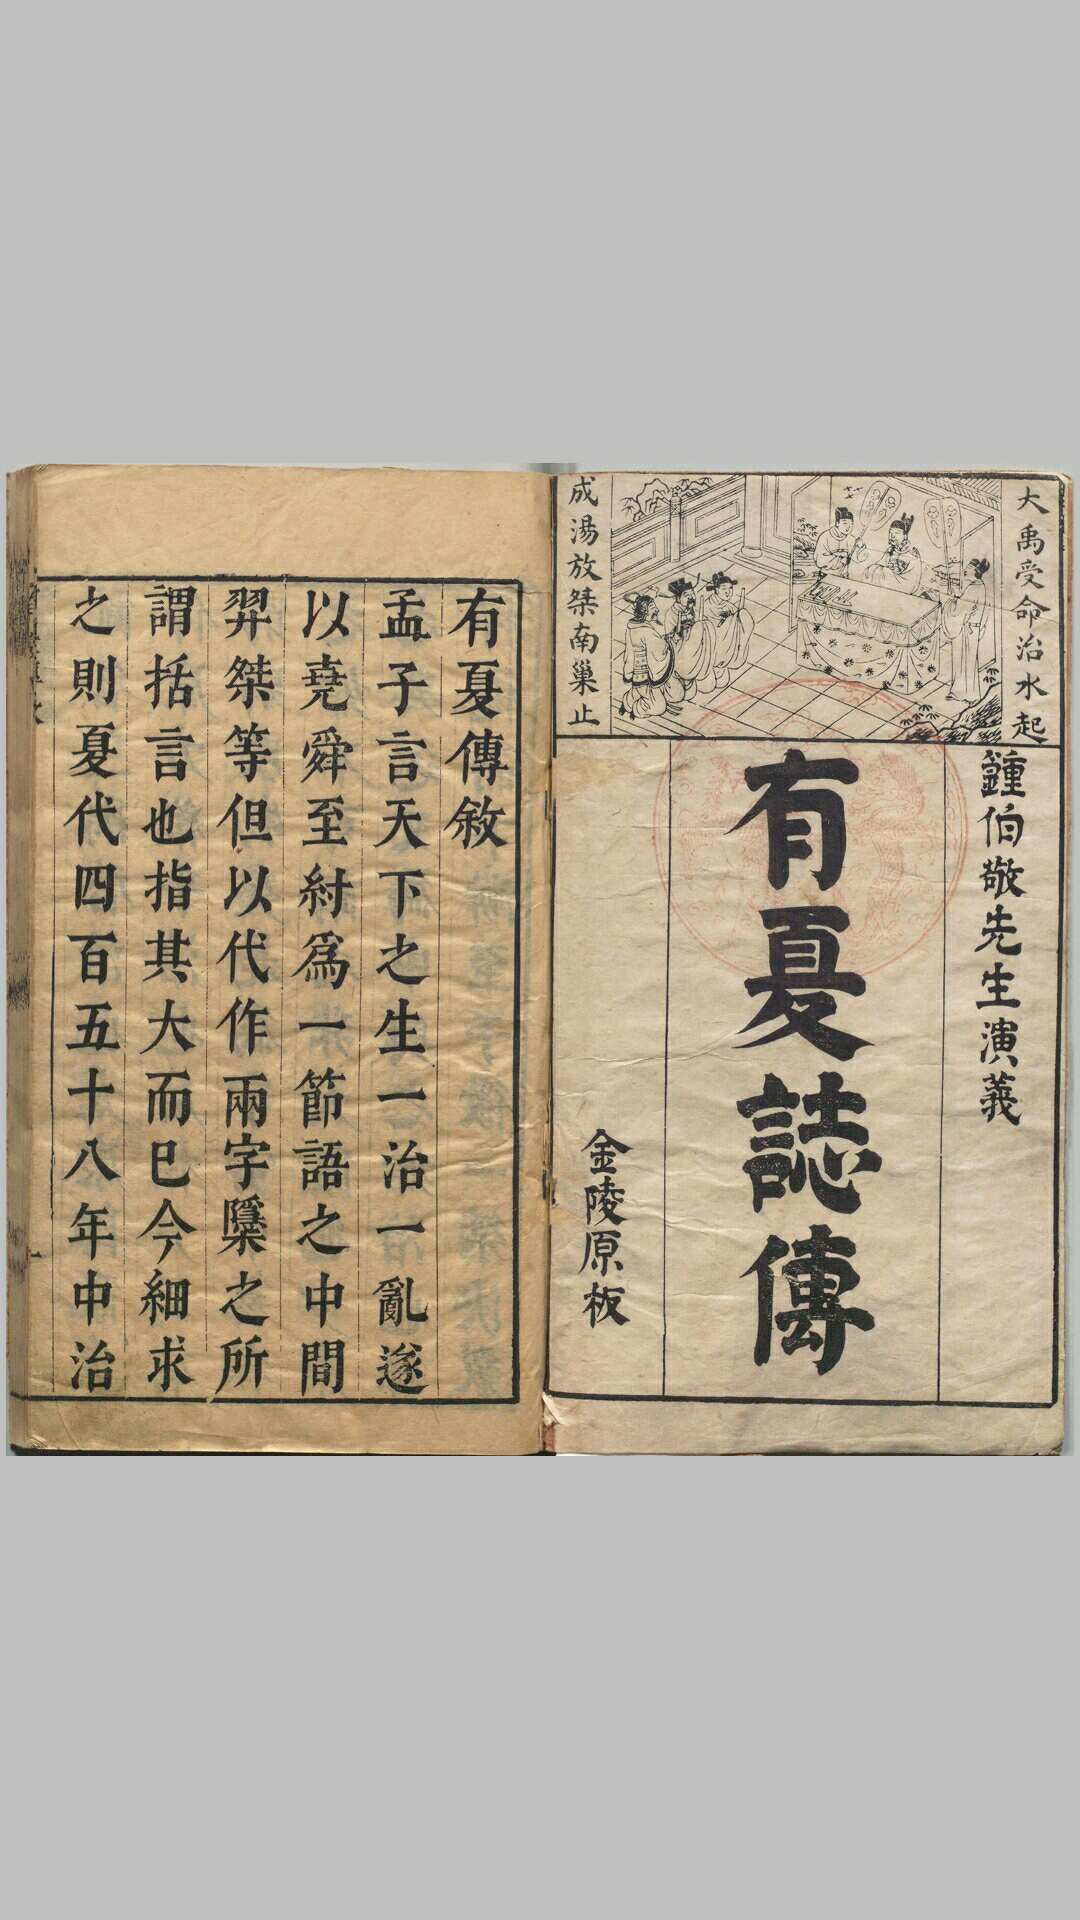 大禹受命治水起
成湯放桀南巢止
鍾伯敬先生演義
有夏誌傳
金陵原板
有夏傳敘
孟子言天下之生一治一亂遂
以堯舜至紂爲一節語之中間
羿桀等但以代作兩字檃之所
謂括言也指其大而已今細求
之則夏代四百五十八年中治